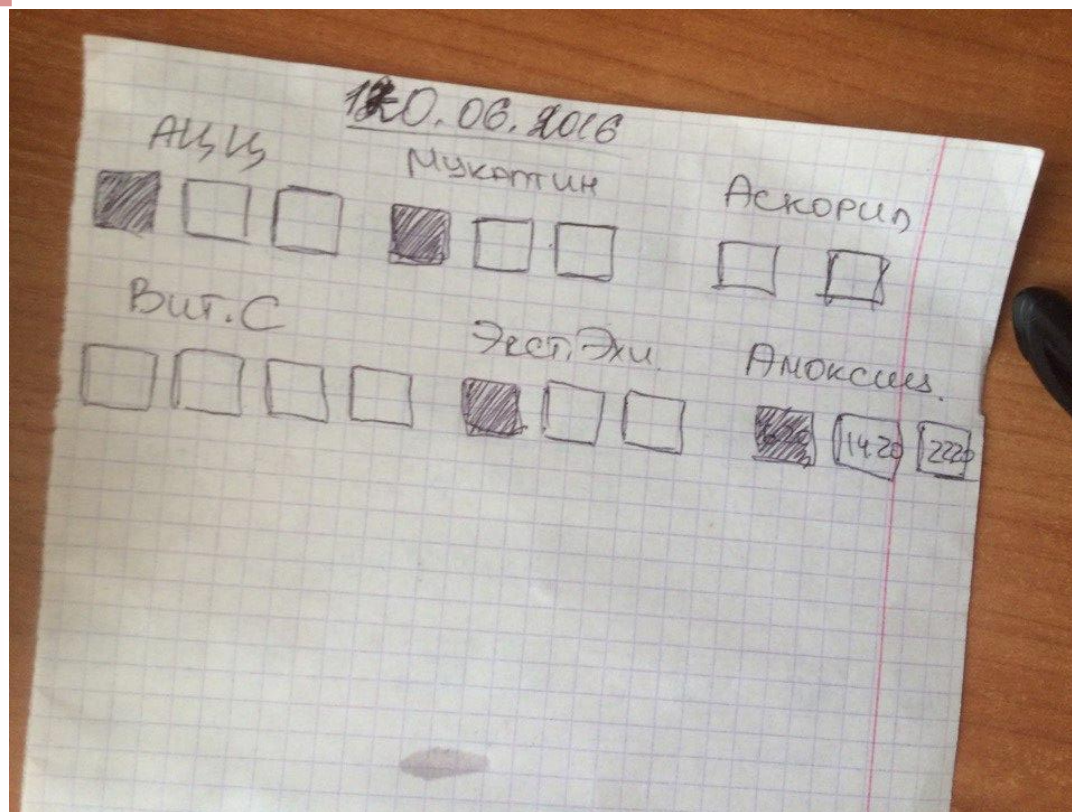 10.06.2016
АЦЦ Мукалтин Аскорил
Вит.С Экст.Эхи. Амоксиц.
14.20 2220